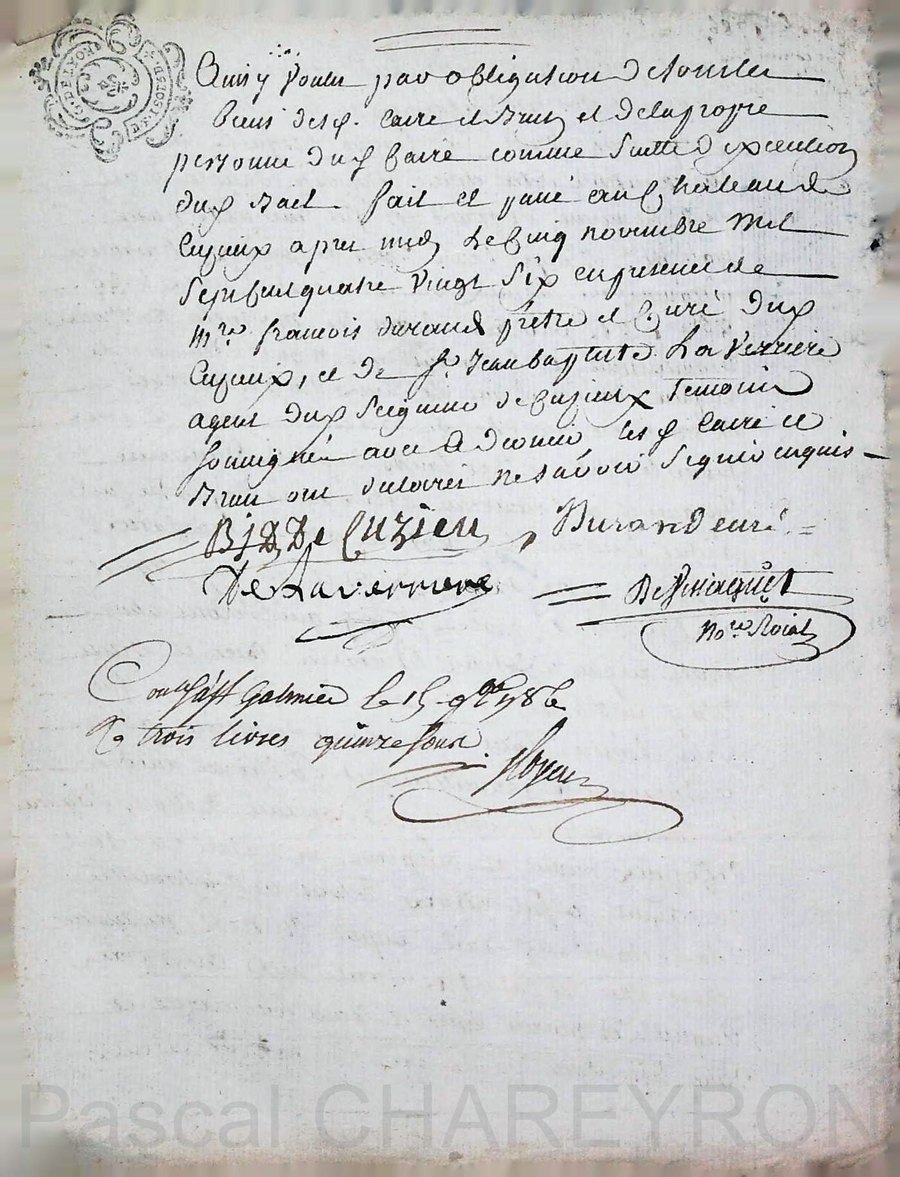 G. DE LYON
DEUX SOLS
Ainsy Voulu par obligation de tous les
biens desd. Faure et Brun et de la propre
personne dud Faure comme Suitte d'execution
dud Bail. fait et passé au Chateau de
Cuzieux apres midy Le Cinq novembre Mil
Sept Cent quatre Vingt Six en presence de
Mre françois durand Prêtre et Curé dud
Cuzieux, et de Sr. Jean baptiste La Verriere
agent dud Seigneur de Cuzieux Temoins
Soussignés avec Led. les d Faure et
Brun ont déclarés ne Sávoir Signer enquis
De Cuzieu Durand curé
De Laverriere
Nore Roial
Conlé à St Galmier le 15 9bre 1786
R trois livres quinze Sous
Pascal CHAREYRON